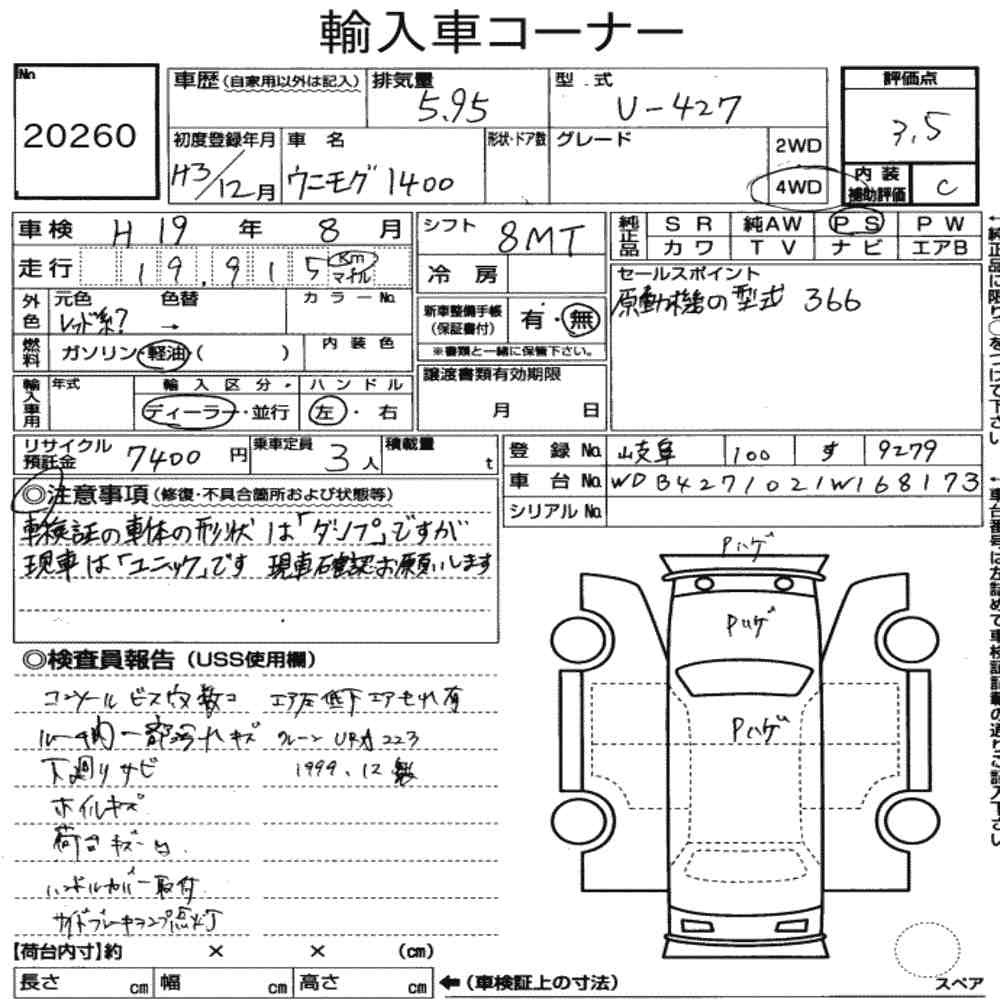 輸入車コーナー
No
20260
車歴(自家用以外は記入) 排気量 5.95 型式 U-427
評価点 3.5
初度登録年月 H3/12月 車名 ウニモグ1400 形状・ドア数 グレード 2WD 4WD
内装補助評価 C
車検 H19年8月 シフト 8MT
走行 19,915 Km マイル 冷房
純正品 SR 純AW PS PW
カワ TV ナビ エアB
外色 元色 レッド系? 色替 → カラーNo
新車整備手帳(保証書付) 有・無
※書類と一緒に保管下さい。
セールスポイント
原動機の型式 366
燃料 ガソリン・軽油・( ) 内装色
輸入車用 年式 輸入区分・ハンドル
ディーラー・並行 左・右
譲渡書類有効期限
月 日
リサイクル預託金 7400円 乗車定員 3人 積載量 t
登録No. 岐阜 100 す 9279
車台No. WDB4271021W168173
シリアルNo.
◎注意事項(修復・不具合箇所および状態等)
車検証の車体の形状は「ダンプ」ですが
現車は「ユニック」です 現車確認お願いします
◎検査員報告(USS使用欄)
コンソールビス穴数コ エア圧低下エアもれ有
ルーフ内一部汚れキズ クレーン URA 223
下廻りサビ 1999.12製
ホイルキズ
荷台キズ
ハンドルカバー取付
サイドブレーキランプ点灯
Pハゲ
Pハゲ
Pハゲ
【荷台内寸】約 × × (cm)
長さ cm 幅 cm 高さ cm ←(車検証上の寸法)
スペア
←純正品に限り○をつけて下さい
←車台番号は左詰めで車検証記載の通りご記入下さい